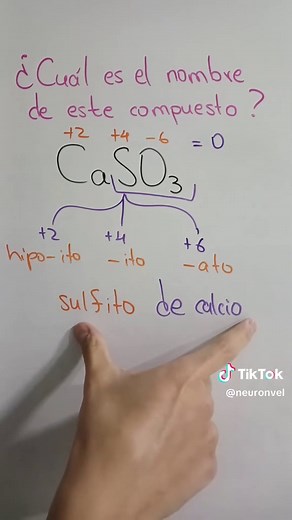 ¿Cuál es el nombre
de este compuesto?
+2 +4 -6 = 0
CaSO₃
+2 +4 +6
hipo-ito -ito -ato
sulfito de calcio
TikTok
@neuronvel